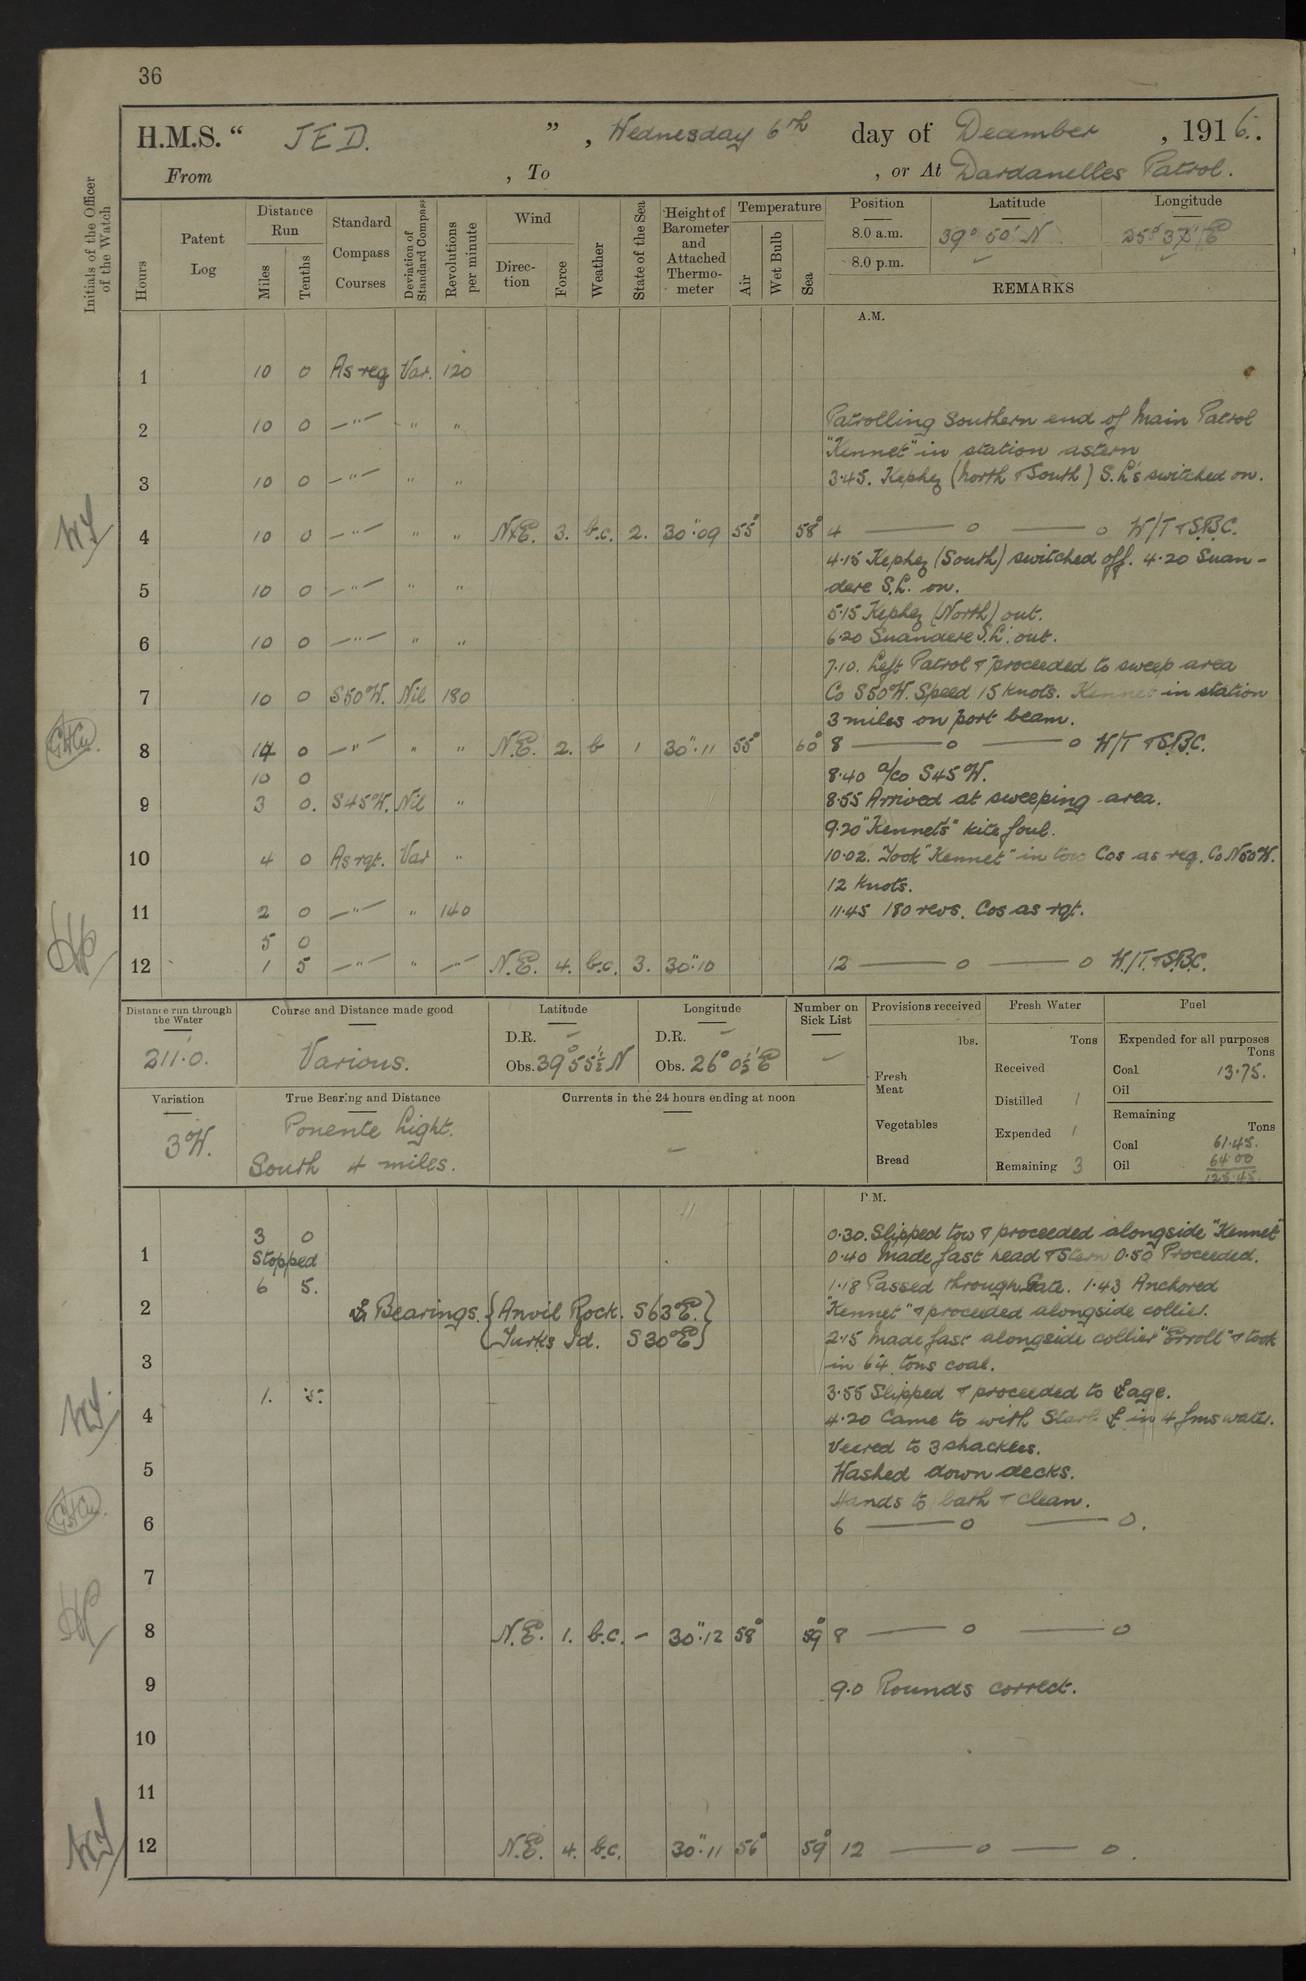 36
H.M.S. “ JED. ” , Wednesday 6th day of December , 1916.
From , To , or At Dardanelles Patrol.
Initials of the Officer of the Watch
Hours
Patent Log
Distance Run
Miles
Tenths
Standard Compass Courses
Deviation of Standard Compass
Revolutions per minute
Wind
Direction
Force
Weather
State of the Sea
Height of Barometer and Attached Thermometer
Temperature
Air
Wet Bulb
Sea
Position Latitude Longitude
8.0 a.m. 39° 50' N 25° 37' E
8.0 p.m. – –
REMARKS
A.M.
1 10 0 As req Var. 120
2 10 0 —"— " " Patrolling Southern end of Main Patrol
"Kennet" in station astern
3 10 0 —"— " " 3.45. Kephez (North & South) S.L's switched on.
4 10 0 —"— " " NxE. 3. b.c. 2. 30".09 55° 58° 4 —— o —— o W/T & S.B.C.
4.15 Kephez (South) switched off. 4.20 Suan-
5 10 0 —"— " " dere S.L. on.
5.15 Kephez (North) out.
6 10 0 —"— " " 6.20 Suandere S.L. out.
7.10. Left Patrol & proceeded to sweep area
7 10 0 S50°W. Nil 180 Co S50°W. Speed 15 knots. Kennet in station
3 miles on port beam.
8 14 0 —"— " " N.E. 2. b 1 30".11 55° 60° 8 —— o —— o W/T & S.B.C.
10 0 8.40 a/co S45°W.
9 3 0. S45°W. Nil " 8.55 Arrived at sweeping area.
9.20 "Kennets" kite foul.
10 4 0 As rqt. Var " 10.02. Took "Kennet" in tow Cos as req. Co N50°W.
12 knots.
11 2 0 —"— " 140 11.45 180 revs. Cos as rqt.
5 0
12 1 5 —"— " —"— N.E. 4. b.c. 3. 30".10 12 —— o —— o W/T. & S.B.C.
Distance run through the Water
211.0.
Course and Distance made good
Various.
Latitude
D.R. –
Obs. 39° 55½' N
Longitude
D.R. –
Obs. 26° 0½' E
Number on Sick List
–
Provisions received
lbs.
Fresh Meat
Vegetables
Bread
Fresh Water
Tons
Received
Distilled 1
Expended 1
Remaining 3
Fuel
Expended for all purposes
Tons
Coal 13.75.
Oil
Remaining
Tons
Coal 61.45.
Oil 64.00
125.45.
Variation
3°W.
True Bearing and Distance
Ponente Light.
South 4 miles.
Currents in the 24 hours ending at noon
–
P.M.
3 0 0.30. Slipped tow & proceeded alongside "Kennet"
1 Stopped 0.40 Made fast head & Stern 0.50 Proceeded.
6 5. 1.18 Passed through Gate. 1.43 Anchored
2 Bearings. {Anvil Rock. S63°E.} "Kennet" & proceeded alongside collier.
{Turks Id. S30°E} 2.15 Made fast alongside collier "Erroll" & took
3 in 64 tons coal.
1. 5. 3.55 Slipped & proceeded to
4 4.20 Came to with Starb in 4 fms water.
Veered to 3 shackles.
5 Washed down decks.
Hands to bath & clean.
6 6 —— o —— o.
7
8 N.E. 1. b.c. – 30".12 58° 59° 8 —— o —— o
9 9.0 Rounds correct.
10
11
12 N.E. 4. b.c. 30".11 56° 59° 12 —— o —— o.